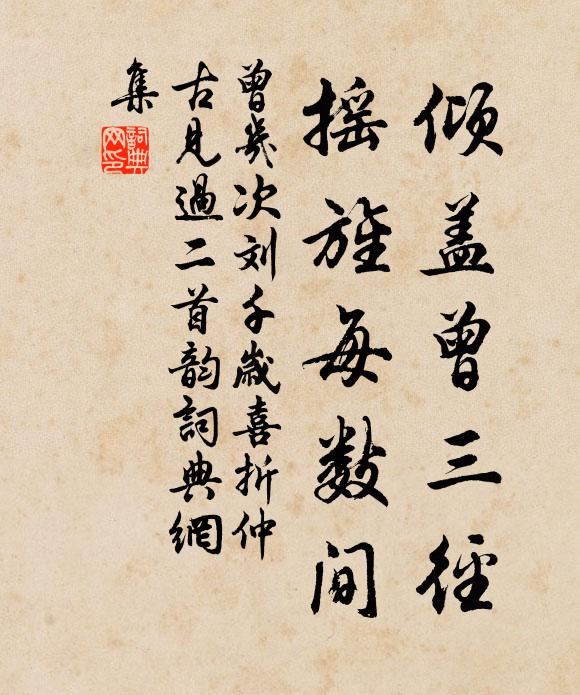 倾盖曾三径
摇旌每数间
曾几次刘千岁喜折仲
古见过二首韵詞典網
集
詞典
网印